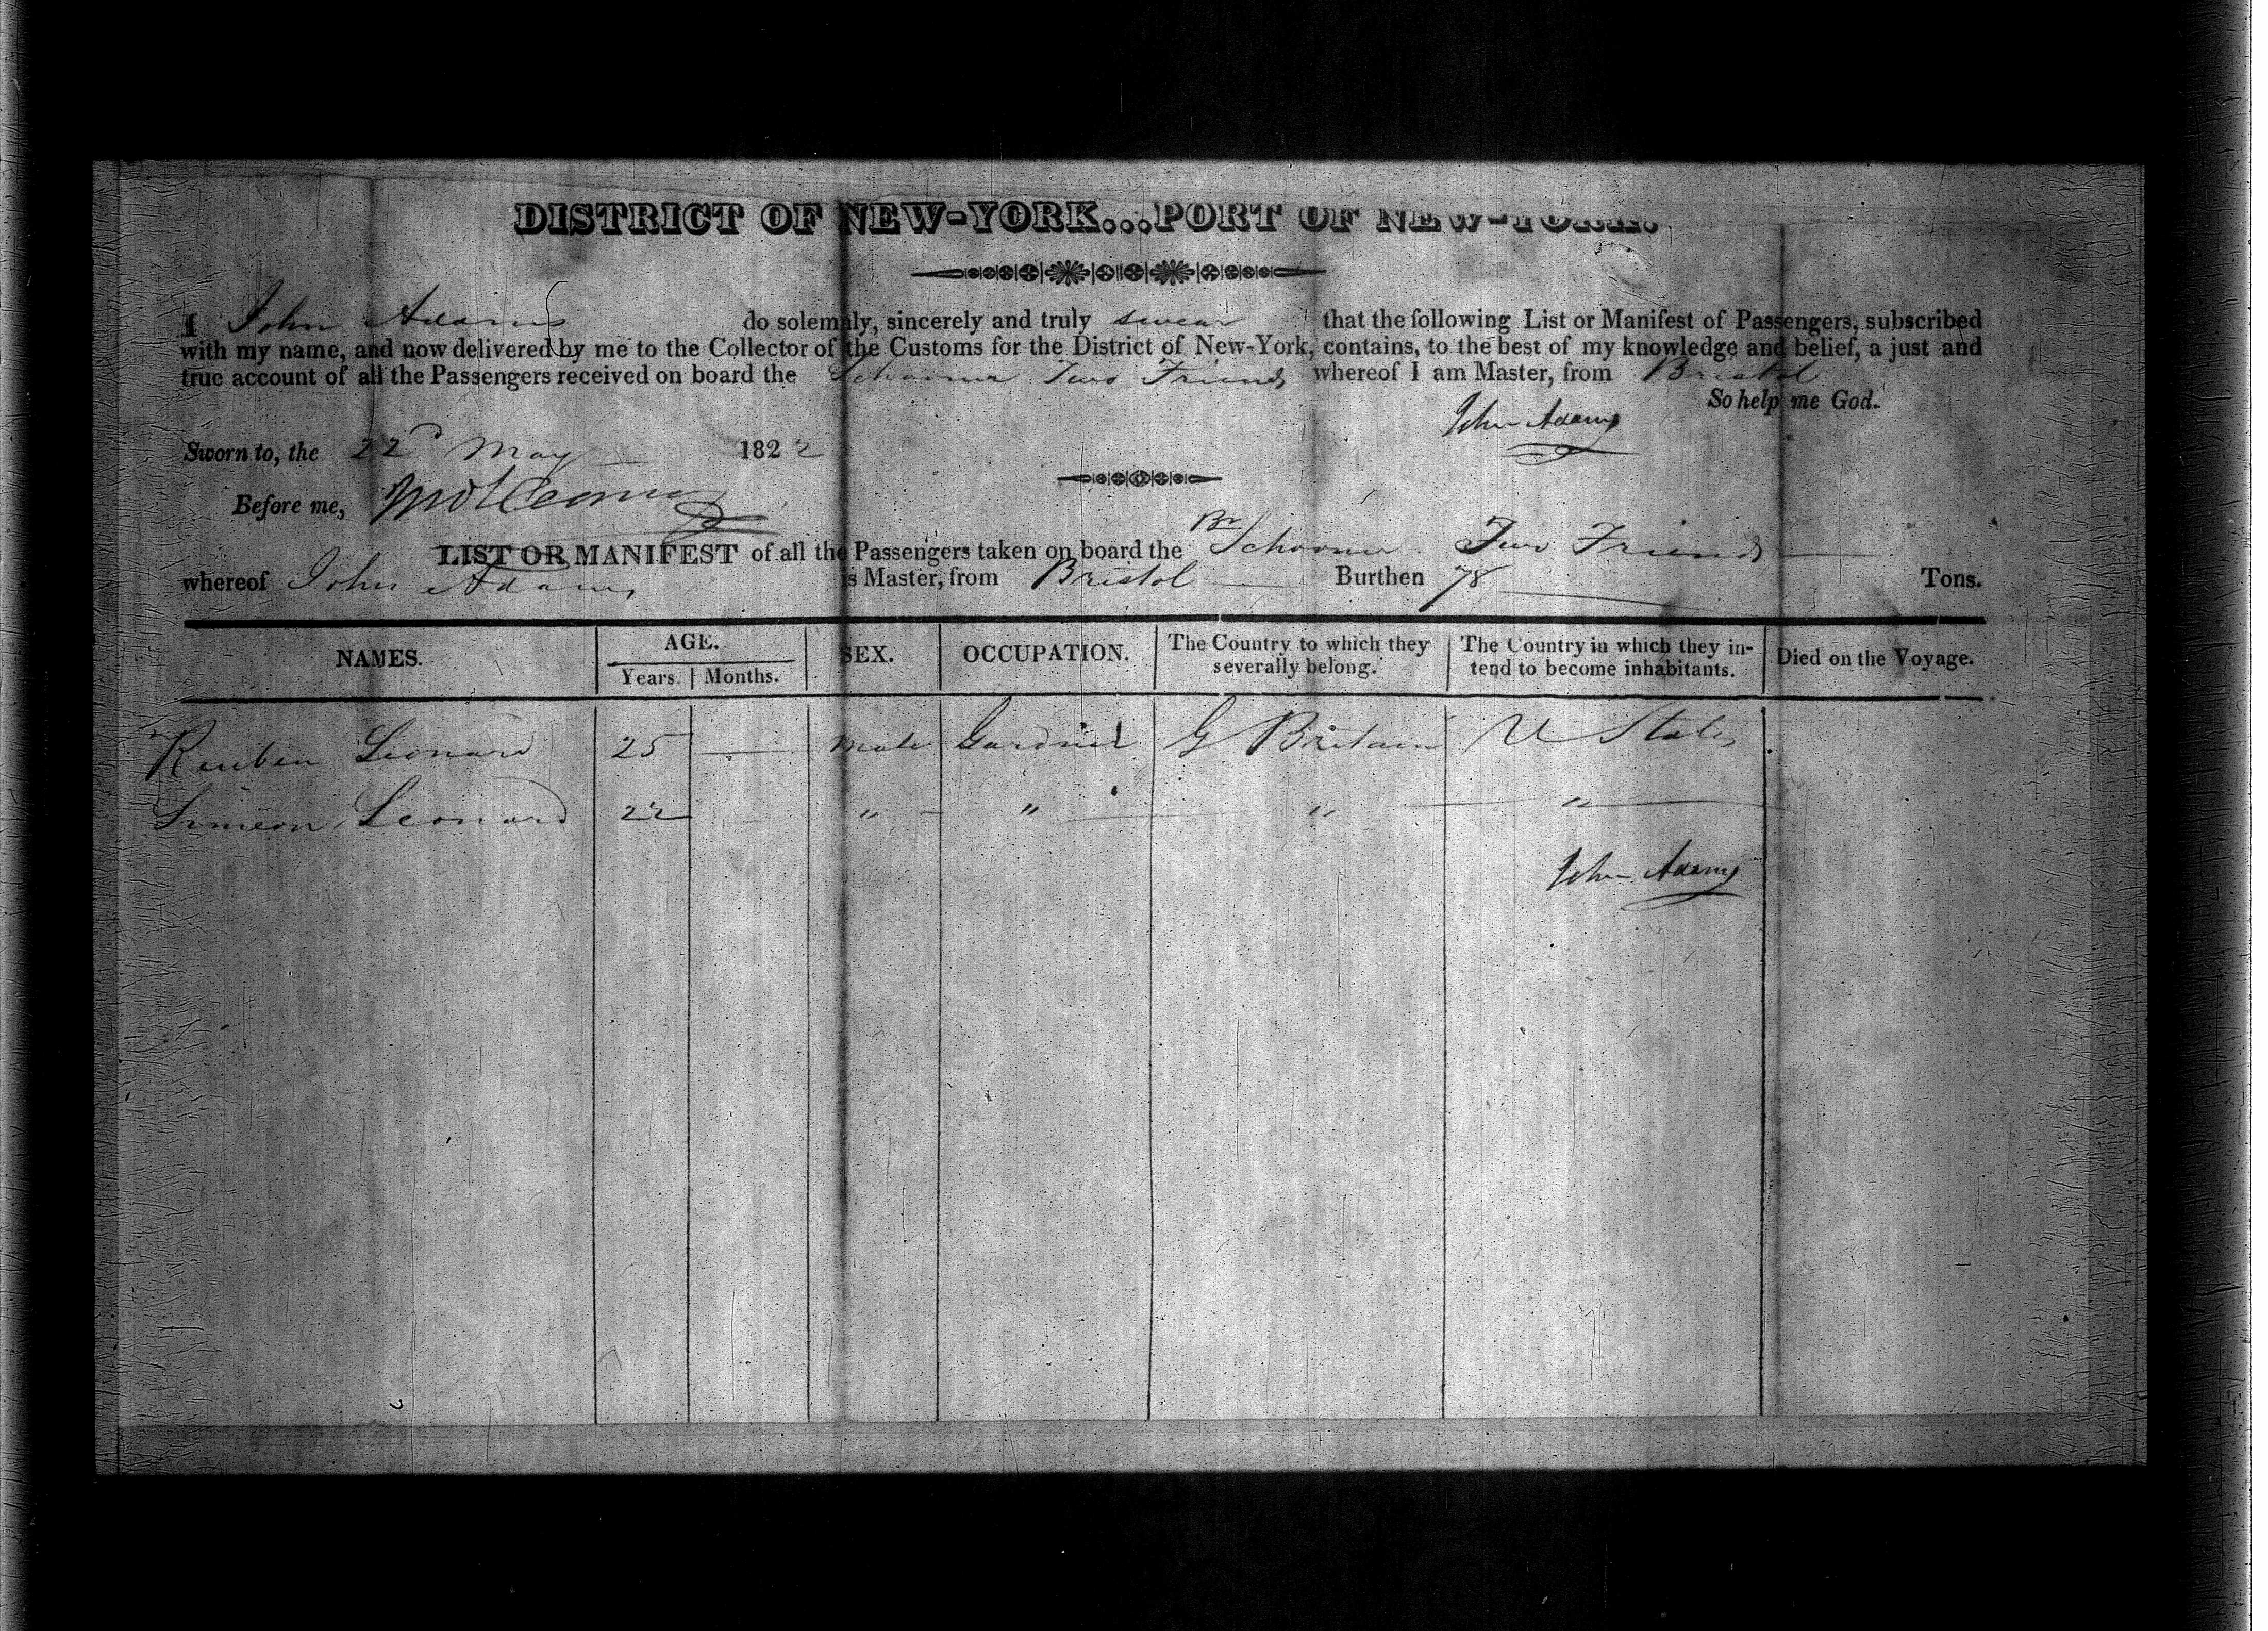 DISTRICT OF NEW-YORK...PORT OF NEW-YORK.
I John Adams do solemnly, sincerely and truly swear that the following List or Manifest of Passengers, subscribed
with my name, and now delivered by me to the Collector of the Customs for the District of New-York, contains, to the best of my knowledge and belief, a just and
true account of all the Passengers received on board the Schooner Two Friends whereof I am Master, from Bristol
So help me God.
John Adams
Sworn to, the 22d May 1822
Before me,
LIST OR MANIFEST of all the Passengers taken on board the Br Schooner Two Friends
whereof John Adams is Master, from Bristol Burthen 78 Tons.
NAMES. AGE. Years. Months. SEX. OCCUPATION. The Country to which they severally belong. The Country in which they intend to become inhabitants. Died on the Voyage.
Reuben Leonard 25 — male Gardner G Britain U States
Simeon Leonard 22 — " " " "
John Adams